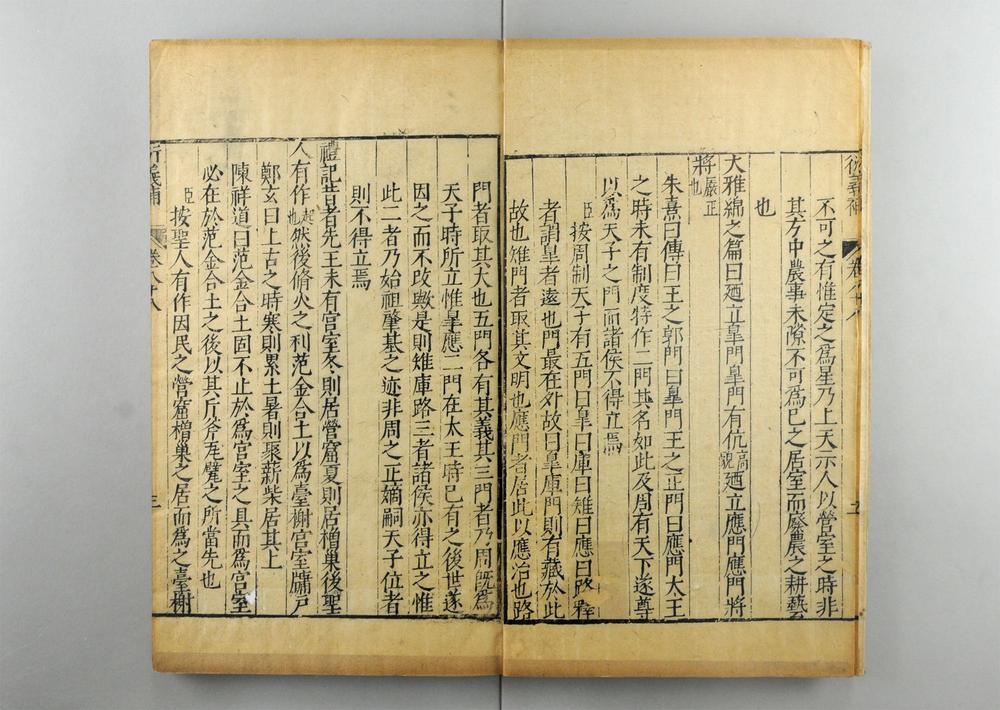 不可之有惟定之為星乃上天示人以營室之時非
其方中農事未隙不可為巳之居室而廢農之耕藝
也
大雅綿之篇曰廼立臯門臯門有伉高貌廼立應門應門將
將嚴正也
朱熹曰傳曰王之郭門曰臯門王之正門曰應門大王
之時未有制度特作二門其名如此及周有天下遂尊
以為天子之門而諸侯不得立焉
臣按周制天子有五門曰臯曰庫曰雉曰應曰路釋
者謂臯者遠也門最在外故曰臯庫門則有藏於此
故也雉門者取其文明也應門者居此以應治也路
門者取其大也五門各有其義其三門者乃周旣為
天子時所立惟臯應二門在太王時已有之後世遂
因之而不改歟是則雉庫路三者諸侯亦得立之惟
此二者乃始祖肇基之迹非周之正嫡嗣天子位者
則不得立焉
禮記昔者先王未有宮室冬則居營窟夏則居橧巢後聖
人有作起也然後脩火之利范金合土以為臺榭宮室牖戶
鄭玄曰上古之時寒則累土暑則聚薪柴居其上
陳祥道曰范金合土固不止於為宮室之具而為宮室
必在於范金合土之後以其斤斧瓦甓之所當先也
臣按聖人有作因民之營窟橧巢之居而為之臺榭
衍義補 卷八十八 三